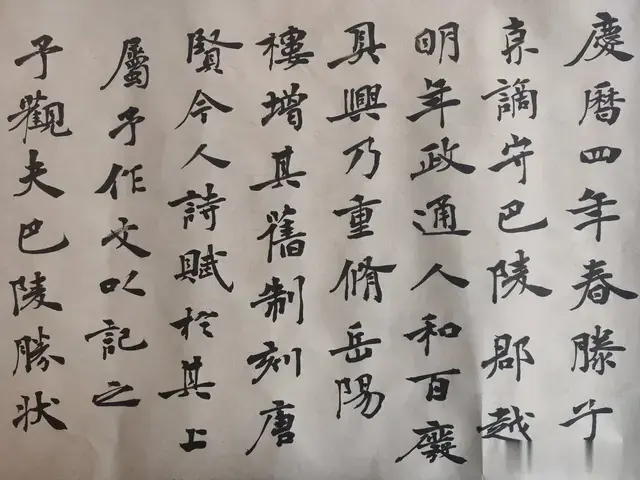 慶曆四年春滕子
京謫守巴陵郡越
明年政通人和百廢
具興乃重脩岳陽
樓增其舊制刻唐
賢今人詩賦於其上
屬予作文以記之
予觀夫巴陵勝狀